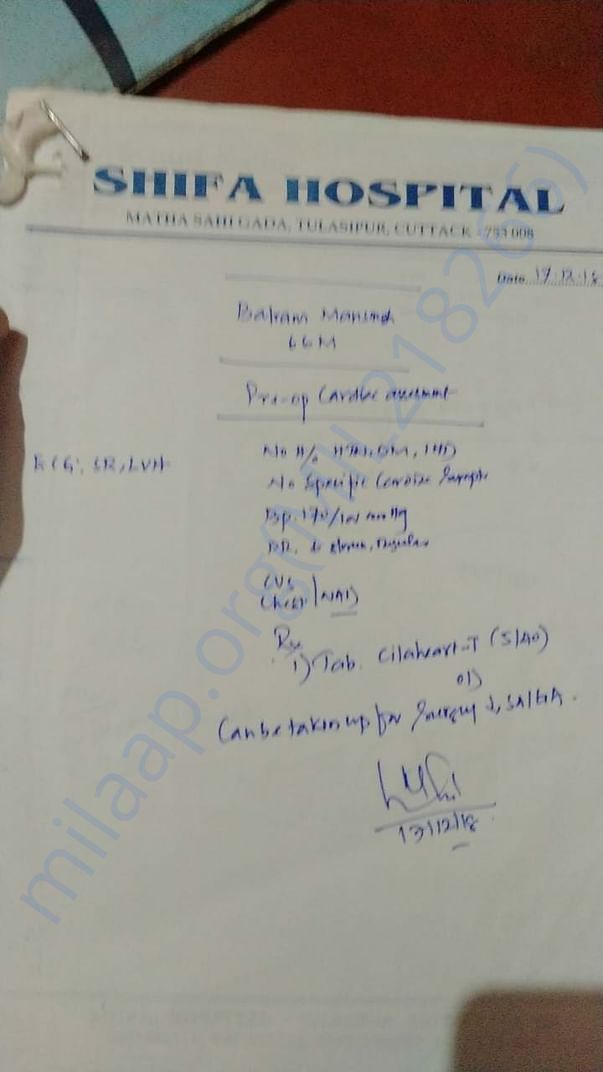 SHIFA HOSPITAL
MATHA SAHI GADA, TULASIPUR, CUTTACK - 753 008
Date 17.12.18
66M
Pre-op Cardiac
ECG: SR, LVH
No H/o HTN, DM, IHD
No Specific Cardiac
Bp. 170/100 mmHg
regular
CVS
Chest NAD
Rx
1) Tab. Cilaheart-T (5/40)
OD
Can be taken up for Surgery SA/GA.
17/12/18
milaap.org(Mil_218266)